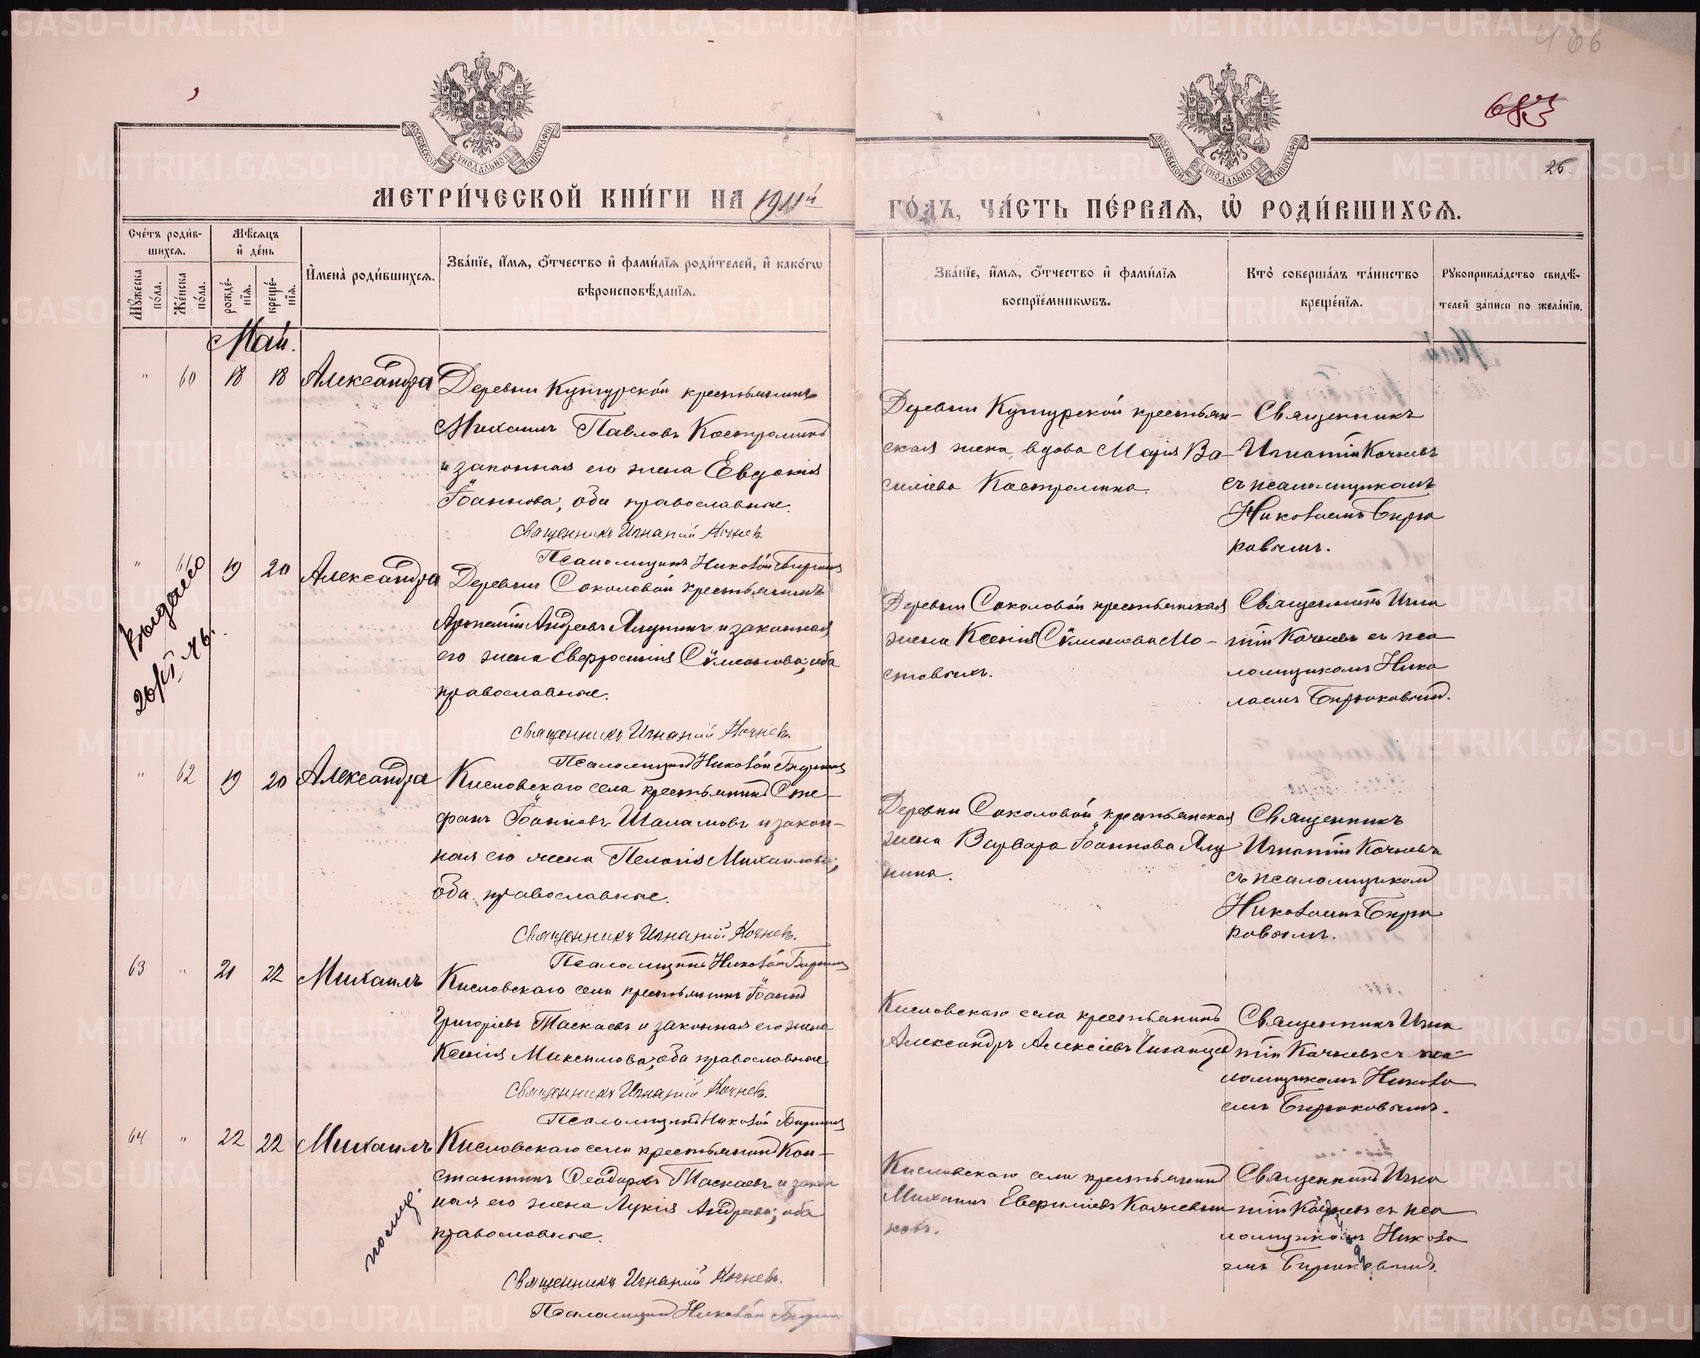 METRIKI.GASO-URAL.RU
466
683
26.
МОСКОВСКОЙ СѴНОДАЛЬНОЙ ТИПОГРАФІИ
МЕТРИ́ЧЕСКОЙ КНИ́ГИ НА 1911й
ГО́ДЪ, ЧА́СТЬ ПЕ́РВАЯ, Ѡ҆ РОДИ́ВШИХСЯ.
Сче́тъ роди́в-
шихся.
Мѣ́сяцъ
и҆ де́нь
Му́жеска по́ла.
Же́нска по́ла.
рожде́-
нїя.
креще́-
нїя.
И҆мена̀ роди́вшихся.
Зва́нїе, и҆́мя, ѻ҆́тчество и҆ фами́лїя роди́телей, и҆ како́гѡ
вѣроисповѣ́данїя.
Зва́нїе, и҆́мя, ѻ҆́тчество и҆ фами́лїя
воспрїе́мникѡвъ.
Кто̀ соверша́лъ та́инство
креще́нїя.
Рꙋкоприкла́дство свидѣ́-
телей за́писи по жела́нїю.
Май.
" 60 18 18 Александра
Деревни Кутурской крестьянинъ
Михаилъ Павловъ Костроминъ
и законная его жена Евдокия
Іоаннова, оба православные.
Священникъ Игнатій Кочневъ
Псаломщикъ Николай Бирюковъ
Деревни Кутурской крестьян-
ская жена, вдова Марія Ва-
силіева Костромина.
Священникъ
Игнатій Кочневъ
съ псаломщикомъ
Николаемъ Бирю
ковымъ.
" 61 19 20 Александра
Выдано
Деревни Соколовой крестьянинъ
Андреевъ Ялунинъ и законная
его жена Евфросинія Сѵмеонова, оба
православные.
Священникъ Игнатій Кочневъ
Псаломщикъ Николай Бирюковъ
Деревни Соколовой крестьянская
жена Ксенія Сѵмеонова Мо-
стовыхъ.
Священникъ Игна
тій Кочневъ съ пса
ломщикомъ Нико
лаемъ Бирюковымъ.
" 62 19 20 Александра
Кисловскаго села крестьянинъ Сте-
фанъ Іоанновъ Шаламовъ и закон-
ная его жена Пелагія Михаилова,
оба православные.
Священникъ Игнатій Кочневъ.
Псаломщикъ Николай Бирюковъ
Деревни Соколовой крестьянская
жена Варвара Іоаннова Ялу
нина.
Священникъ
Игнатій Кочневъ
съ псаломщикомъ
Николаемъ Бирю
ковымъ.
63 " 21 22 Михаилъ
Кисловскаго села крестьянинъ Іоаннъ
Григоріевъ Таскаевъ и законная его жена
Ксенія Максимова, оба православные
Священникъ Игнатій Кочневъ.
Псаломщикъ Николай Бирюковъ
Кисловскаго села крестьянинъ
Александръ Алексіевъ
Священникъ Игна
тій Кочневъ съ пса
ломщикомъ Никола
емъ Бирюковымъ.
64 " 22 22 Михаилъ
Кисловскаго села крестьянинъ Кон-
стантинъ Ѳеодоровъ Таскаевъ и закон
ная его жена Лукія Андреева, оба
православные.
Священникъ Игнатій Кочневъ.
Псаломщикъ Николай Бирюковъ
Кисловскаго села крестьянинъ
Михаилъ
Священникъ Игна
тій Кочневъ съ пса
ломщикомъ Никола
емъ Бирюковымъ.